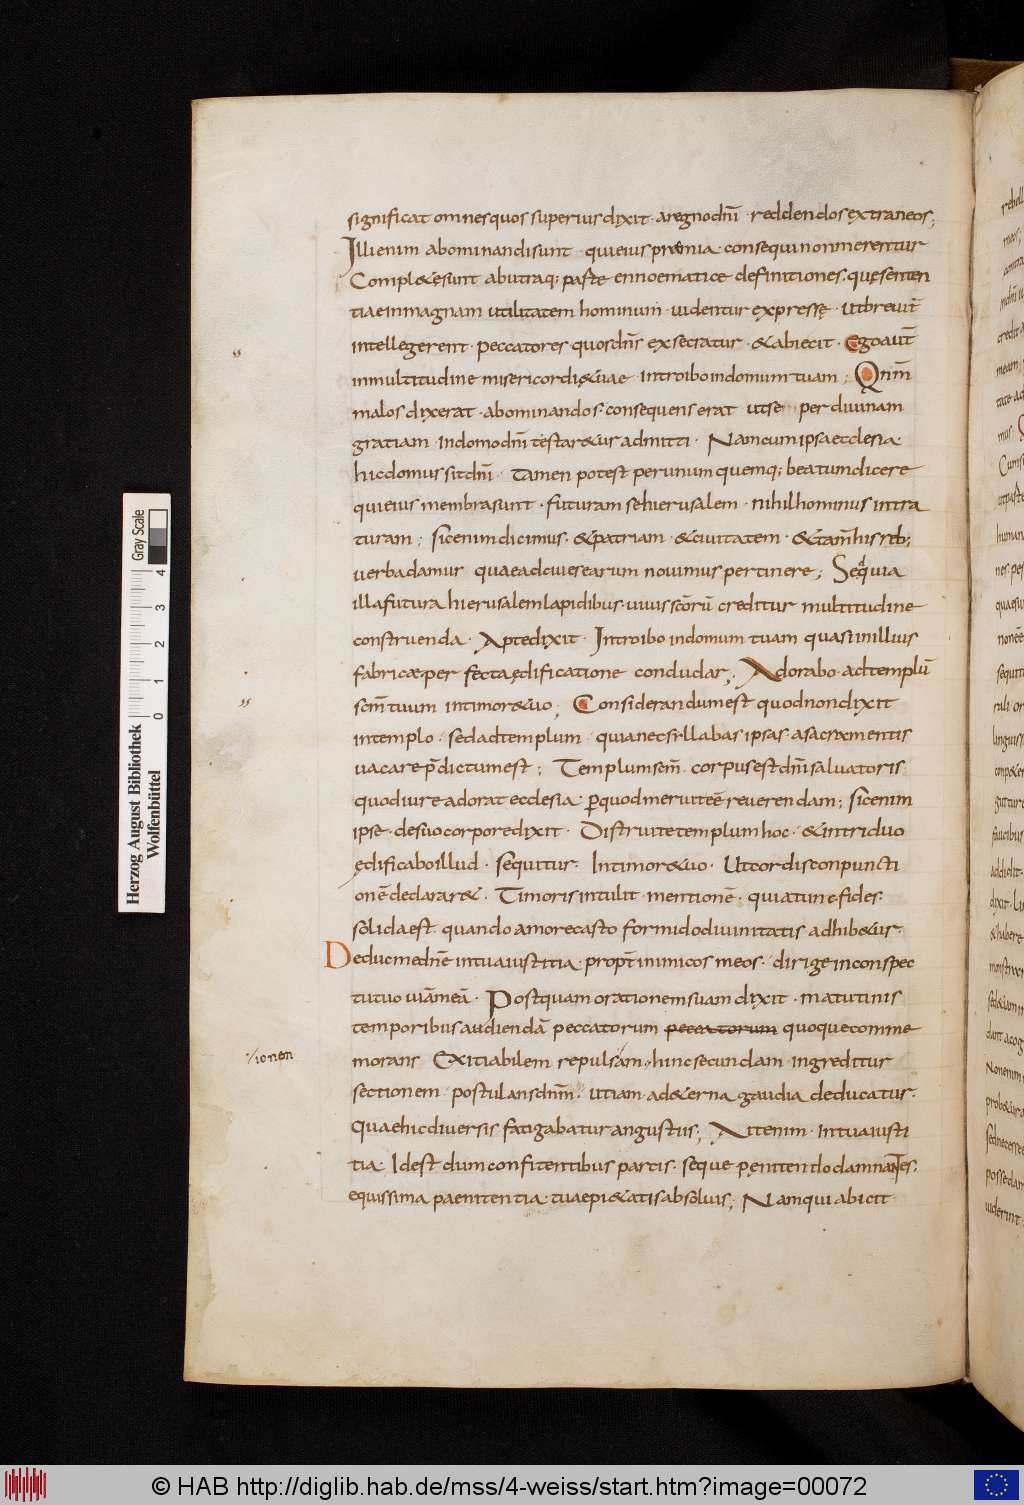 significat omnes quos superius dixit · a regno dn̄i · reddendos extraneos;
Illi enim abominandi sunt · qui eius praemia consequi non merentur
Compl&ę sunt abutraq; parte ennoematice definitiones · quę senten
tiae in magnam utilitatem hominum · uidentur expressę · ut breuit̄
intellegerent · peccatores quos dn̄s exsecratur · & abiecit · Ego aut̄
in multitudine misericordię tuae · introibo in domum tuam; Qn̄m
malos dixerat · abominandos · consequens erat ut se per diuinam
gratiam · in domo dn̄i testar&ur admitti · Nam cum ipsa ecclesia
hic domus sit dn̄i · tamen potest per unum quemq; beatum dicere
qui eius membra sunt · futuram se hierusalem · nihilhominus intra
turam; sic enim dicimus · & patriam · & ciuitatem · & tam̄ his reb;
uerba damus quae ad ciues earum nouimus pertinere; Seq̄ quia
illa futura hierusalem lapidibus uiuis sc̄orū creditur multitudine
construenda · Apte dixit · Introibo in domum tuam quasi in illius
fabricae perfecta ędificatione concludar; Adorabo ad templū
sc̄m tuum in timor& uo; Considerandum est quod non dixit
in templo · sed ad templum · quia nec syllabas ipsas · a sacramentis
uacare p̄dictum est; Templum sc̄m · corpus est dn̄i saluatoris
quod iure adorat ecclesia · per quod meruit eē reuerendam; sic enim
ipse · de suo corpore dixit · Distruite templum hoc · & in triduo
ędificabo illud · sequitur · In timor& uo · Ut cordis conpuncti
onē declarar& · Timoris intulit mentionē · quia tunc fides
solida est · quando amore casto formido diuinitatis adhib&ur ·
Deduc me dn̄e in tua iustitia · propt̄ inimicos meos · dirige in conspec
tu tuo uiā meā · Postquam orationem suam dixit · matutinis
temporibus audiendā peccatorum peccatorum quoque comme
morans Exitiabilem repulsam · hinc secundam ingreditur
/ionen
sectionem postulans dn̄m · ut iam ad &erna gaudia deducatur ·
Quae hic diuersis fatigabatur angustiis; Ait enim · in tua iusti
tia Id est dum confitentibus parcis · seque pęnitendo damnantes ·
equissima paenitentia tuae pi&atis absoluis; Nam qui abicit